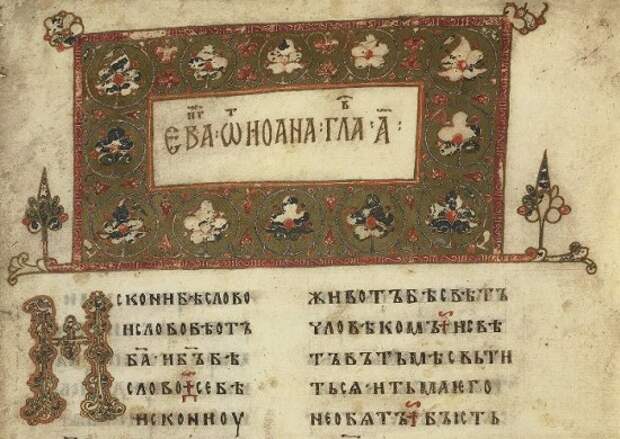 ЕВАⷩ҇ⷢ·Ѡⷮ·ИОАНА·ГЛАⷡ·А҃:
ИСКОНИ БѢ СЛОВО
И СЛОВО БѢ ОТЪ
БА҃·И БЪ҃ БѢ
СЛОВО СЕ БѢ
ИСКОНИ ОУ
ЖИВОТЪ БѢ СВѢТЪ
ЧЛОВѢКОМЪ И СВѢ
ТЪ ВЪ ТЬМѢ СВЬТИ
ТЬСѦ·И ТЬМА ѤГО
НЕ ОБѦТЪ БЫСТЬ